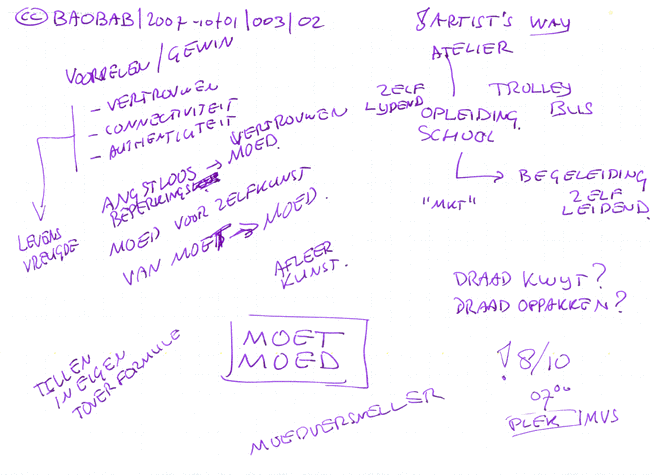 cc BAOBAB | 2007-10-01 | 003 | 02
VOORDELEN / GEWIN
- VERTROUWEN
- CONNECTIVITEIT
- AUTHENTICITEIT
LEVENS
VREUGDE
ANGSTLOOS → VERTROUWEN
BEPERKINGS MOED.
MOED VOOR ZELFKUNST
VAN MOET → MOED.
AFLEER
KUNST.
TILLEN
IN EIGEN
TOVERFORMULE
MOET
MOED
MOEDVERSNELLER
ARTIST'S WAY
ATELIER
ZELF
LYDEND
TROLLEY
BUS
OPLEIDING.
SCHOOL
BEGELEIDING
"MKT"
ZELF
LEIDEND.
DRAAD KWYT?
DRAAD OPPAKKEN?
! 8/10
07⁰⁰
PLEK IMVS